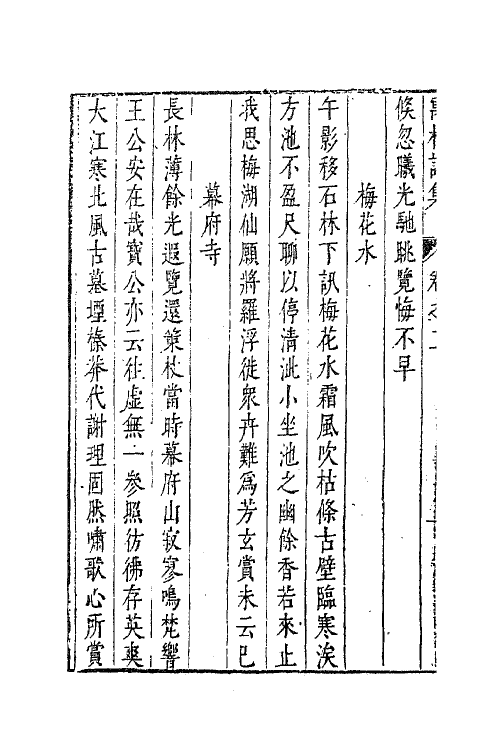 詩集 卷之二
倏忽曦光馳眺覽悔不早
梅花水
午影移石林下訊梅花水霜風吹枯條古壁臨寒涘
方池不盈尺聊以停清泚小坐池之幽餘香若來止
我思梅湖仙願將羅浮徙衆卉難為芳玄賞未云已
幕府寺
長林薄餘光遐覽還策杖當時幕府山寂寥鳴梵響
王公安在哉寶公亦云往虛無一參照彷彿存英爽
大江寒北風古墓堙榛莽代謝理固然嘯歌心所賞